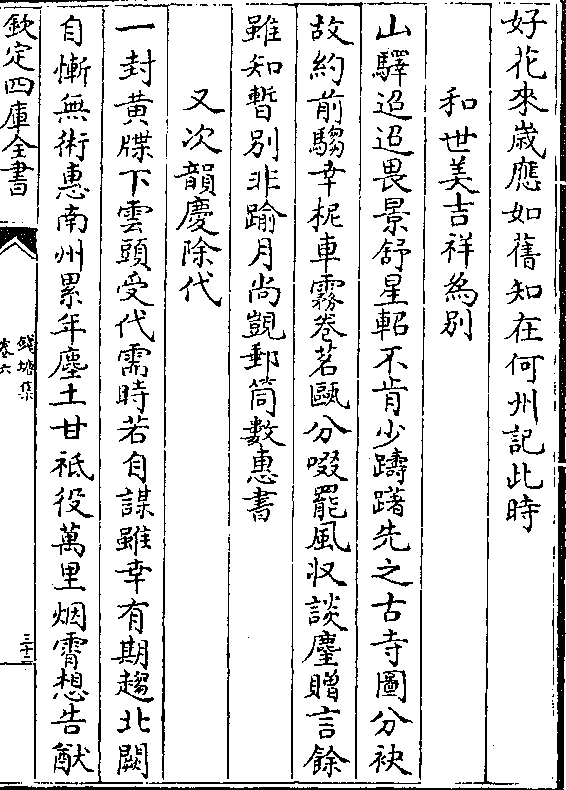 好花來歲應如舊知在何州記此時
和世美吉祥為別
山驛迢迢畏景舒星軺不肯少躊躇先之古寺圖分袂
故約前騶幸柅車霧卷茗甌分啜罷風收談麈贈言餘
雖知暫別非踰月尚覬郵筒數惠書
又次韻慶除代
一封黄牒下雲頭受代需時若自謀雖幸有期趨北闕
自慚無術惠南州累年塵土甘祗役萬里烟霄想告猷
欽定四庫全書
錢塘集
卷六
三十二